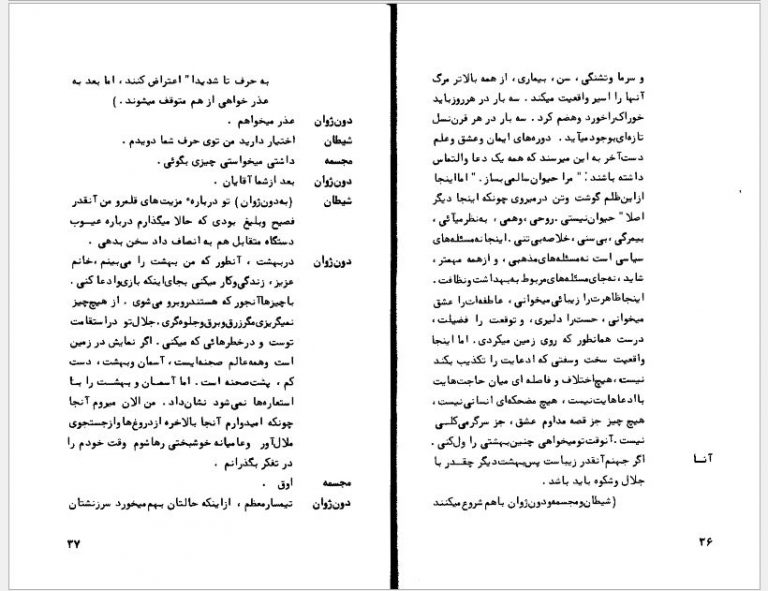 و سرما وتشنگی، سن، بیماری، از همه بالاتر مرگ
آنها را اسیر واقعیت میکند. سه بار در هرروزباید
خوراک‌راخورد وهضم کرد. سه بار در هر قرن‌نسل
تازه‌ای‌بوجودمیآید. دوره‌های ایمان وعشق وعلم
دست‌آخر به این میرسند که همه یک دعا والتماس
داشته باشند: " مرا حیوان‌سالمی‌بساز." اما‌اینجا
ازاین‌ظلم گوشت وتن درمیروی چونکه اینجا دیگر
اصلا" حیوان‌نیستی. روحی، وهمی، به‌نظرمیآئی،
بیمرگی، بی‌سنی، خلاصه‌بی‌تنی. اینجانه‌مسئله‌های
سیاسی است نه‌مسئله‌های‌مذهبی، و ازهمه مهمتر،
شاید، نه‌جای‌مسئله‌های مربوط به‌بهداشت‌ونظافت.
اینجاظاهرت‌را زیبائی‌میخوانی، عاطفه‌ات‌را عشق
میخوانی، حست‌را دلیری، و توقعت را فضیلت،
درست همانطور که روی زمین میکردی. اما اینجا
واقعیت سخت وسفتی که ادعایت را تکذیب بکند
نیست، هیچ‌اختلاف و فاصله ای میان حاجت‌هایت
با‌ادعاهایت‌نیست، هیچ مضحکه‌ای انسانی‌نیست،
هیچ چیز جز قصه مداوم عشق، جز سرگرمی‌کلی
نیست. آنوقت‌تومیخواهی چنین‌بهشتی را ول‌کنی.
آنا اگر جهنم‌آنقدر زیباست پس‌بهشت‌دیگر چقدر با
جلال وشکوه باید باشد.
(شیطان‌ومجسمه‌ودون‌ژوان باهم شروع میکنند
۳۶
به حرف تا شدیدا" اعتراض کنند، اما بعد به
عذر خواهی از هم متوقف میشوند.)
دون‌ژوان عذر میخواهم.
شیطان اختیار دارید من توی حرف شما دویدم.
مجسمه داشتی میخواستی چیزی بگوئی.
دون‌ژوان بعد ازشما آقایان.
شیطان (به‌دون‌ژوان) تو درباره‌ٔ مزیت‌های قلمرو من آنقدر
فصیح وبلیغ بودی که حالا میگذارم درباره عیوب
دستگاه متقابل هم به انصاف داد سخن بدهی.
دون‌ژوان دربهشت، آنطور که من بهشت را می‌بینم، خانم
عزیز، زندگی‌وکار میکنی بجای‌اینکه بازی‌وادعا کنی.
باچیزهاآنجور که هستندروبرو می‌شوی. از هیچ‌چیز
نمیگریزی‌مگرزرق‌وبرق‌وجلوه‌گری، جلال‌تو دراستقامت
توست و درخطرهائی که میکنی. اگر نمایش در زمین
است وهمه‌عالم صحنه‌ایست، آسمان وبهشت، دست
کم، پشت‌صحنه است. اما آسمان و بهشت را با
استعاره‌ها نمی‌شود نشان‌داد. من الان میروم آنجا
چونکه امیدوارم آنجا بالاخره ازدروغها وازجستجوی
ملال‌آور وعامیانه خوشبختی رهاشوم وقت خودم را
در تفکر بگذرانم.
مجسمه اوق.
دون‌ژوان تیمسارمعظم، ازاینکه حالتان بهم‌میخورد سرزنشتان
۳۷